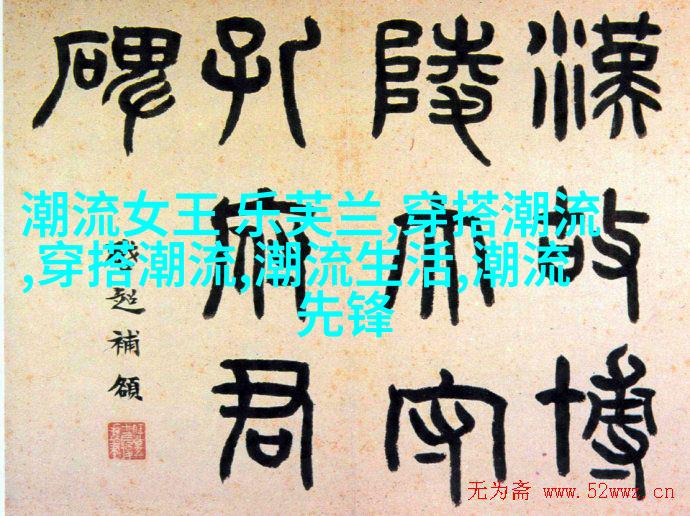 漢故博
陵太守
孔府君
碑
啟超補額
潮流女王 乐芙兰,穿搭潮流
,穿搭潮流,潮流生活,潮流
先锋
无为斋 www.52wwz.cn